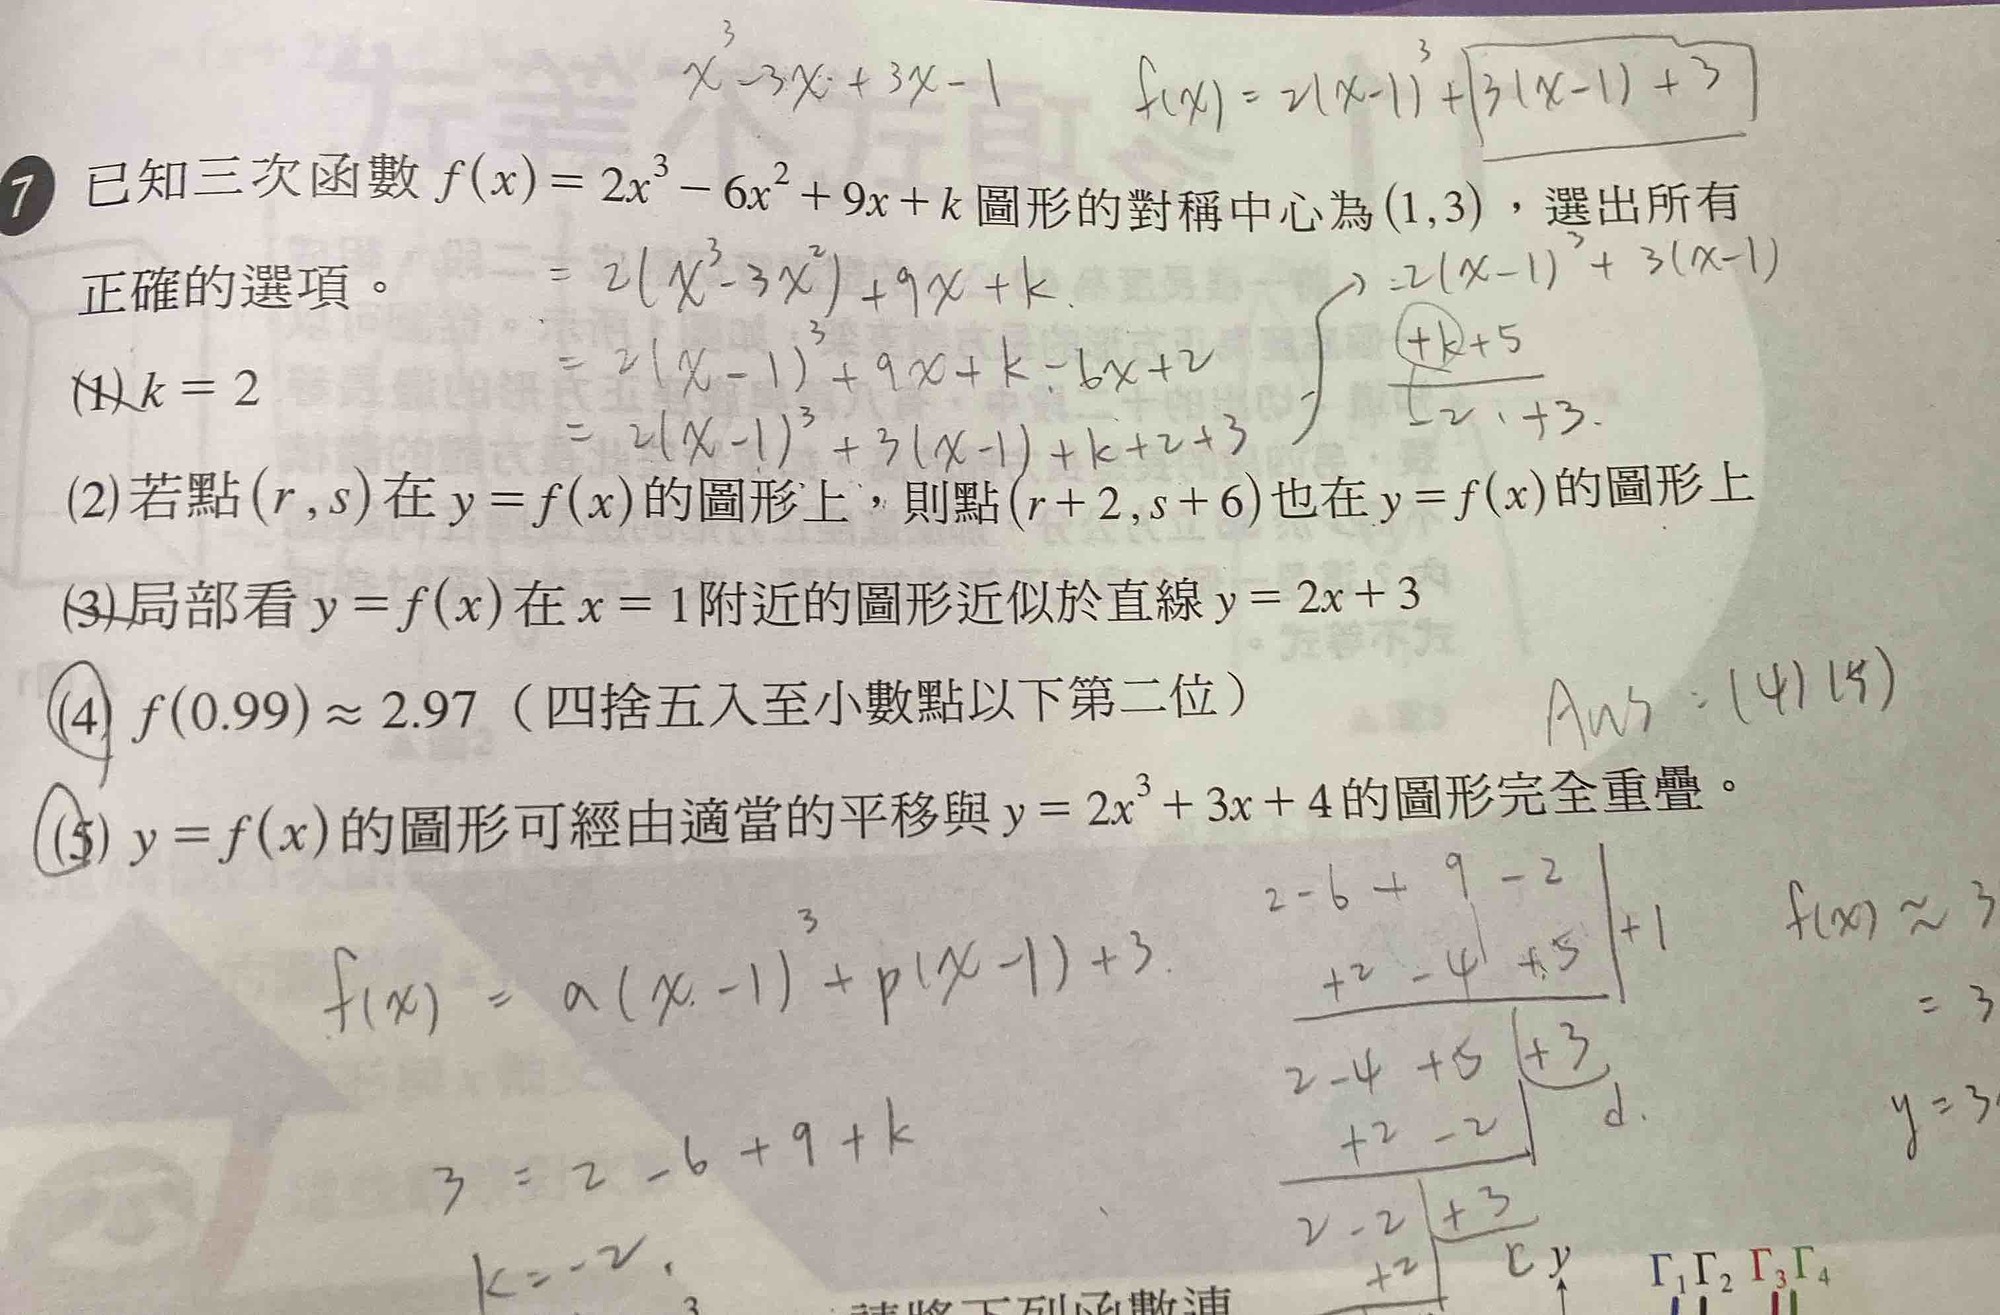 x³-3x²+3x-1
f(x)=2(x-1)³+3(x-1)+3
7 已知三次函數 f(x)=2x³-6x²+9x+k 圖形的對稱中心為(1,3),選出所有
正確的選項。
=2(x³-3x²)+9x+k
=2(x-1)³+3(x-1)
+k+5
=2(x-1)³+9x+k-6x+2
-2 +3.
(1) k=2
=2(x-1)³+3(x-1)+k+2+3
(2)若點(r,s)在 y=f(x)的圖形上,則點(r+2,s+6)也在 y=f(x)的圖形上
(3)局部看 y=f(x)在 x=1附近的圖形近似於直線 y=2x+3
(4) f(0.99)≈2.97(四捨五入至小數點以下第二位)
Ans:(4)(5)
(5) y=f(x)的圖形可經由適當的平移與 y=2x³+3x+4的圖形完全重疊。
2-6+9-2
+1
+2-4+5
f(x)≈3
f(x)=a(x-1)³+p(x-1)+3.
=3
2-4+5+3
d.
+2-2
y=3
3=2-6+9+k
2-2+3
c
+2
k=-2.
y
Γ₁Γ₂ Γ₃Γ₄
請將下列函數連